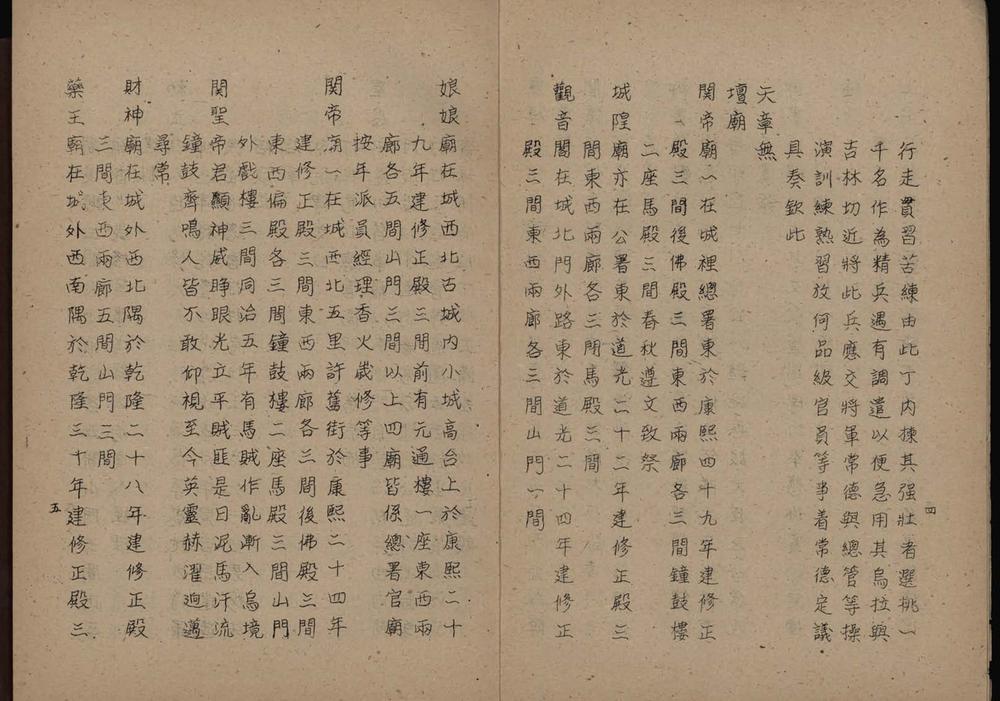 行走貫習苦練由此丁内揀其强壯者選挑一
千名作為精兵遇有調遣以便急用其烏拉與
吉林切近將此兵應交將軍常德與總管等操
演訓練熟習放何品級官員等事着常德定議
具奏欽此
天章無
壇廟
関帝廟一在城裡總署東於康熙四十九年建修正
殿三間後佛殿三間東西兩廊各三間鐘鼓樓
二座馬殿三間春秋遵文致祭
城隍廟亦在公署東於道光二十二年建修正殿三
間東西兩廊各三間馬殿三間
觀音閣在城北門外路東於道光二十四年建修正
殿三間東西兩廊各三間山門一間
四
娘娘廟在城西北古城内小城高台上於康熙二十
九年建修正殿三間前有元通樓一座東西兩
廊各五間山門三間以上四廟皆係總署官廟
按年派員經理香火歲修等事
関帝廟一在城西北五里許舊街於康熙二十四年
建修正殿三間東西兩廊各三間後佛殿三間
東西偏殿各三間鐘鼓樓二座馬殿三間山門
外戲樓三間同治五年有馬賊作亂漸入烏境
関聖帝君顯神威睁眼光立平賊匪是日泥馬汗流
鐘鼓齊鳴人皆不敢仰視至今英靈赫濯迥邁
尋常
財神廟在城外西北隅於乾隆二十八年建修正殿
三間東西兩廊五間山門三間
藥王廟在城外西南隅於乾隆三十年建修正殿三
五